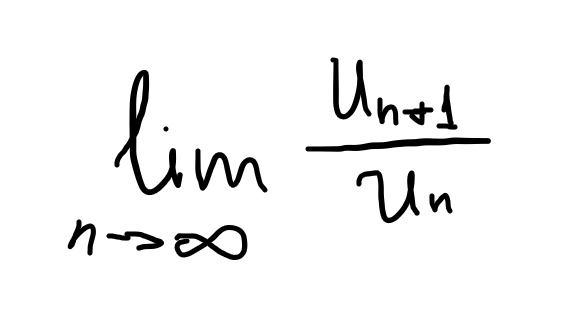 lim n→∞ u_{n+1} / u_n